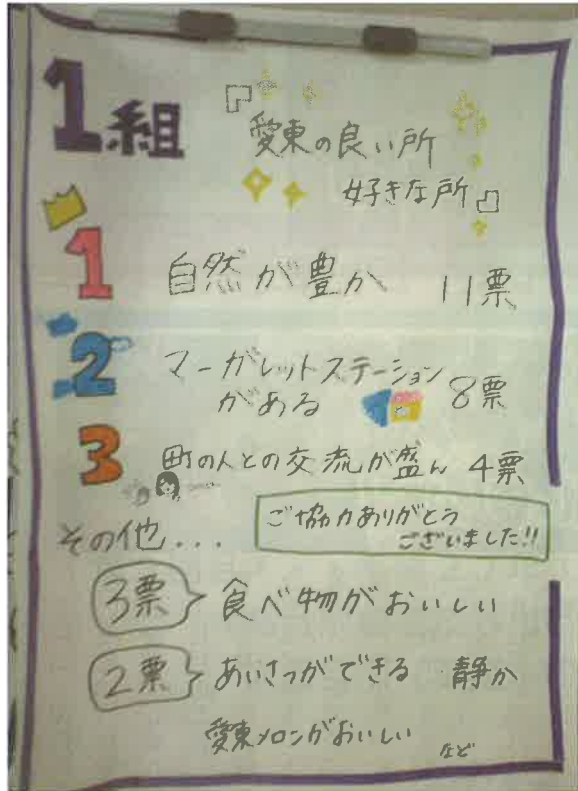 1組
『愛東の良い所
好きな所』
1 自然が豊か 11票
2 マーガレットステーション
がある 8票
3 町の人との交流が盛ん 4票
その他...
ご協力ありがとう
ございました!!
3票 食べ物がおいしい
2票 あいさつができる 静か
愛東メロンがおいしい など